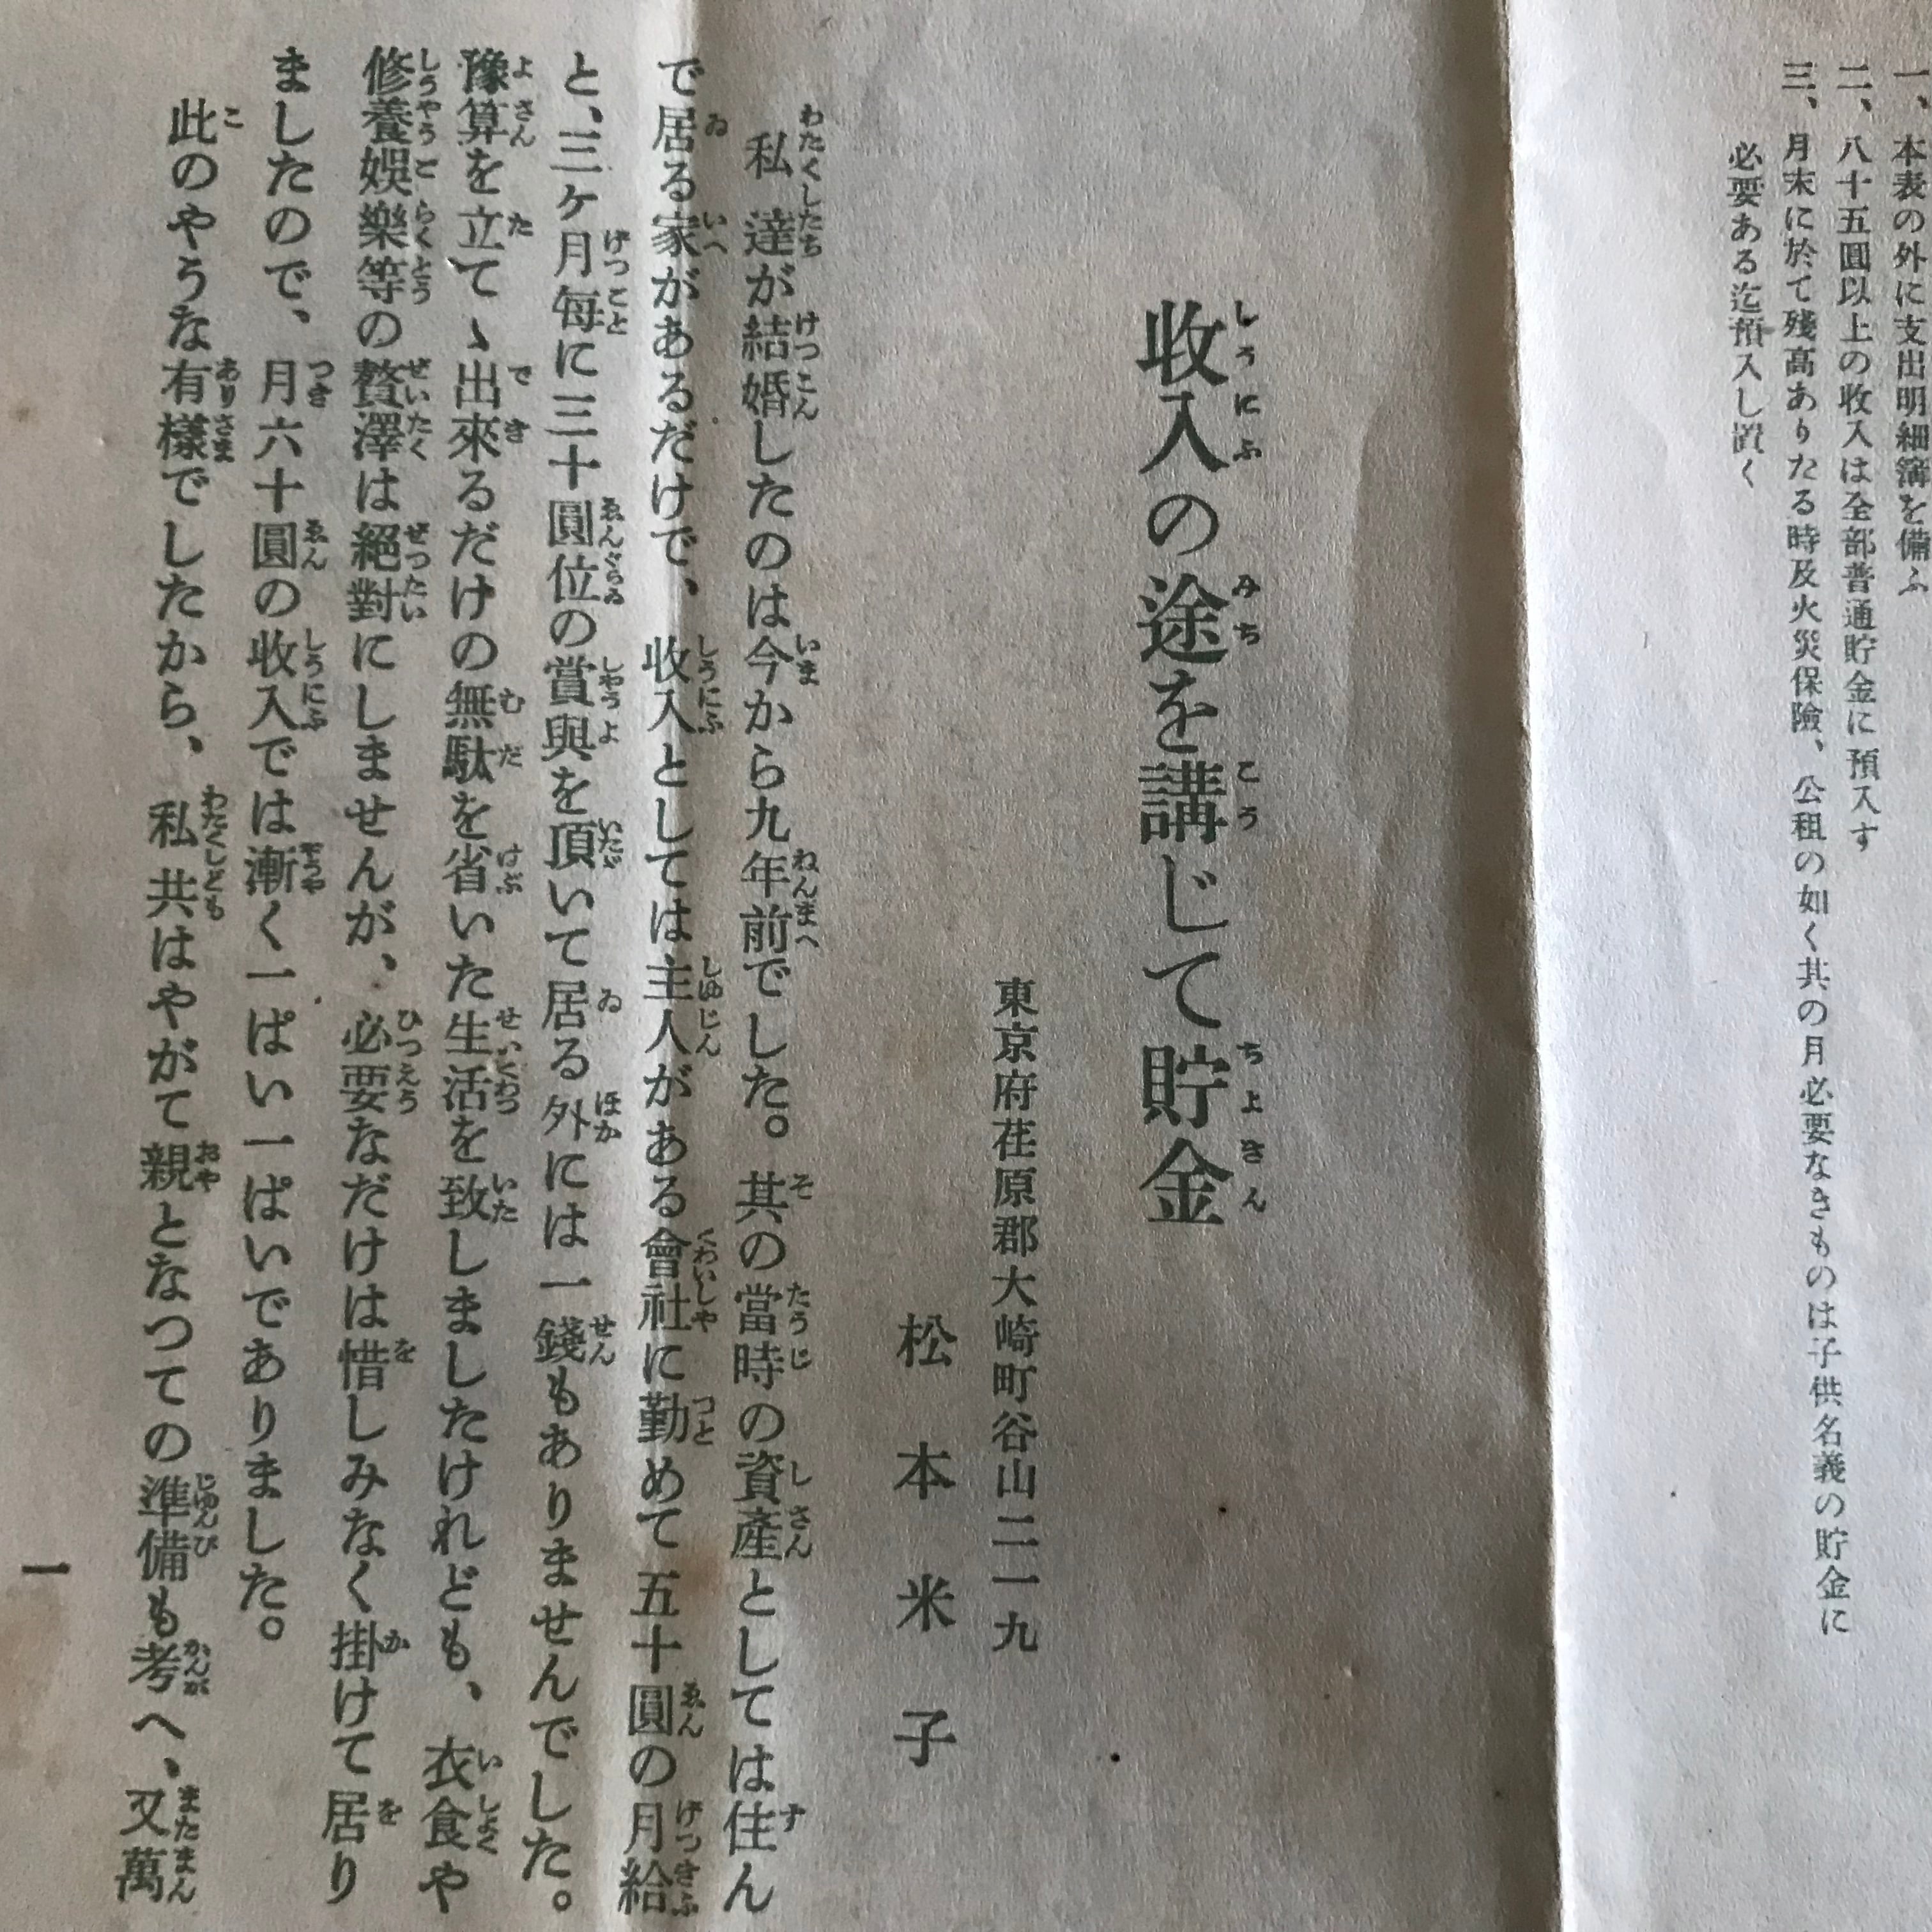 一、本表の外に支出明細簿を備ふ
二、八十五圓以上の收入は全部普通貯金に預入す
三、月末に於て殘高ありたる時及火災保險、公租の如く其の月必要なきものは子供名義の貯金に
必要ある迄預入し置く
收入の途を講じて貯金
東京府荏原郡大崎町谷山二一九
松本米子
私達が結婚したのは今から九年前でした。其の當時の資產としては住ん
で居る家があるだけで、收入としては主人がある會社に勤めて五十圓の月給
と、三ヶ月每に三十圓位の賞與を頂いて居る外には一錢もありませんでした。
豫算を立てゝ出來るだけの無駄を省いた生活を致しましたけれども、衣食や
修養娛樂等の贅澤は絕對にしませんが、必要なだけは惜しみなく掛けて居り
ましたので、月六十圓の收入では漸く一ぱい一ぱいでありました。
此のやうな有樣でしたから、私共はやがて親となつての準備も考へ、又萬
一